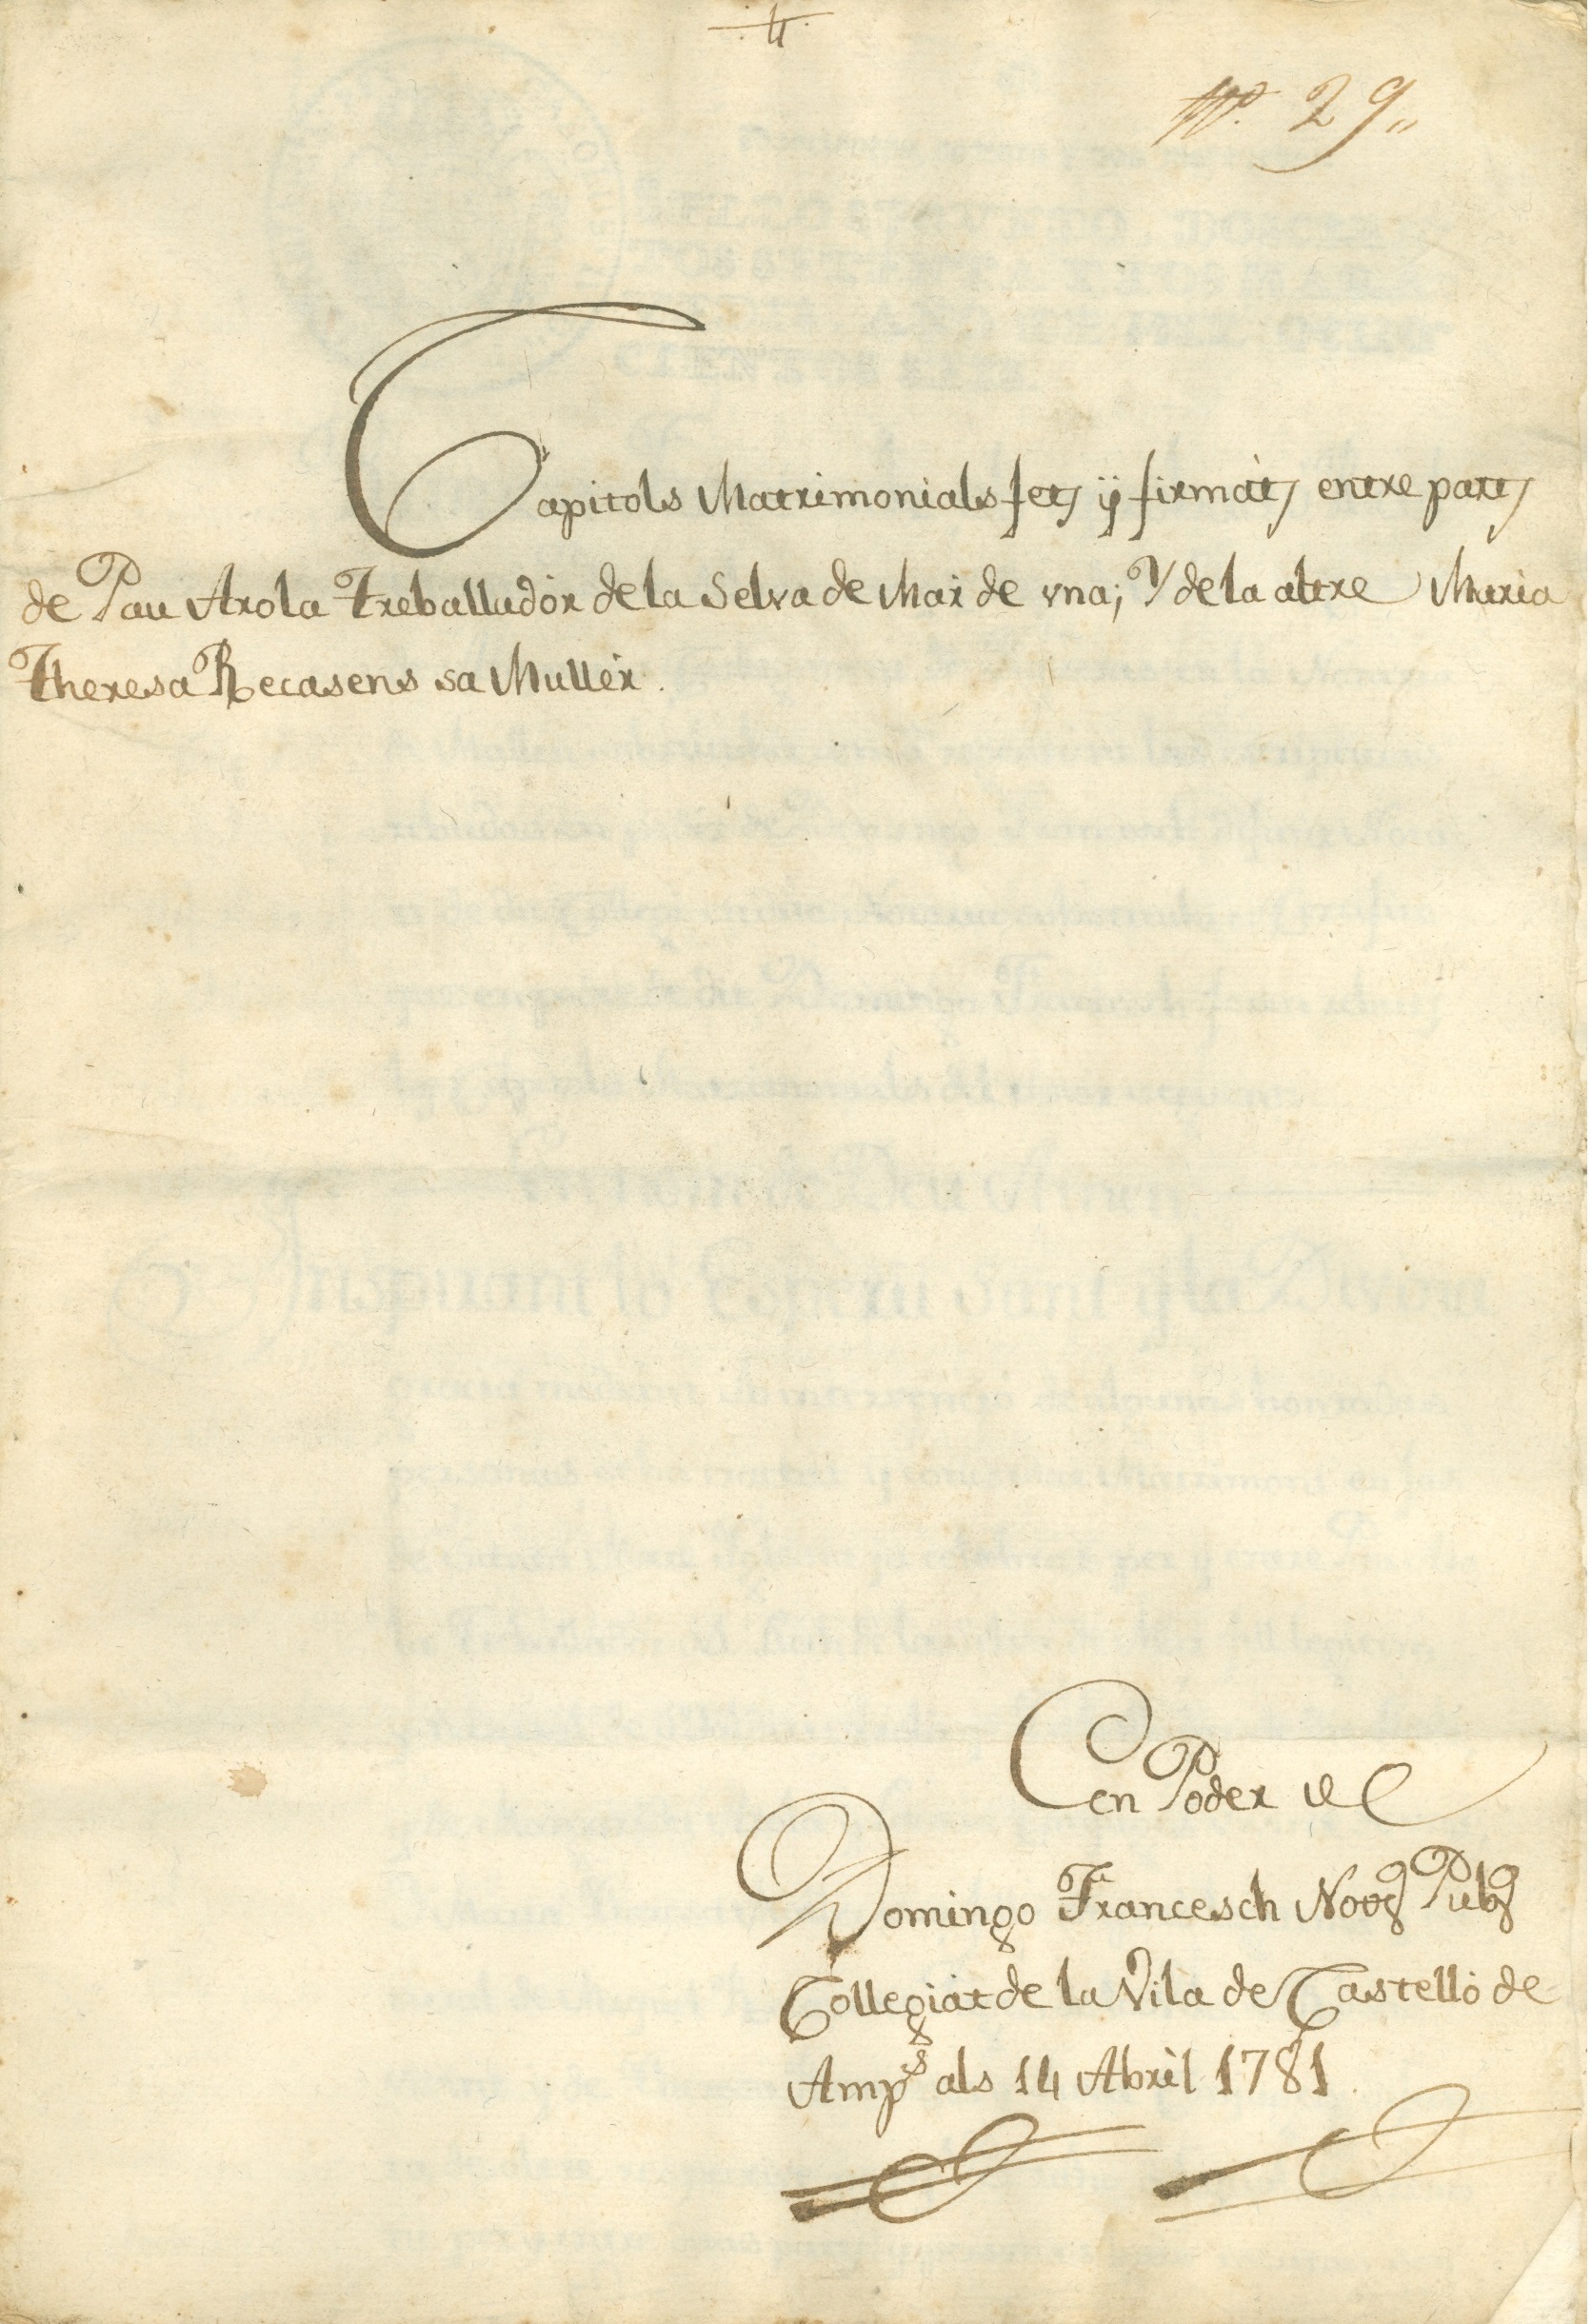 Nº. 29,,
Capitols Matrimonials fets ÿ firmàts entre parts
de Pau Arola Treballadòr de la Selva de Mar de vna; Y de la altre Maria
Theresa Recasens sa Mullèr.
en Poder de
Domingo Francesch Notʳ Pubᶜʰ
Collegiàt de la Vila de Castellò de
Ampˢ als 14 Abril 1781.